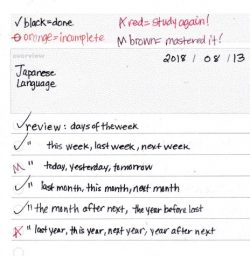 ✓ black=done
K red=study again!
⊖ orange=incomplete
M brown=mastered it!
overview
2018 / 08 / 13
Japanese
Language
✓ review: days of the week
✓ " this week, last week, next week
M " today, yesterday, tomorrow
✓ " last month, this month, next month
✓ " the month after next, the year before last
K " last year, this year, next year, year after next